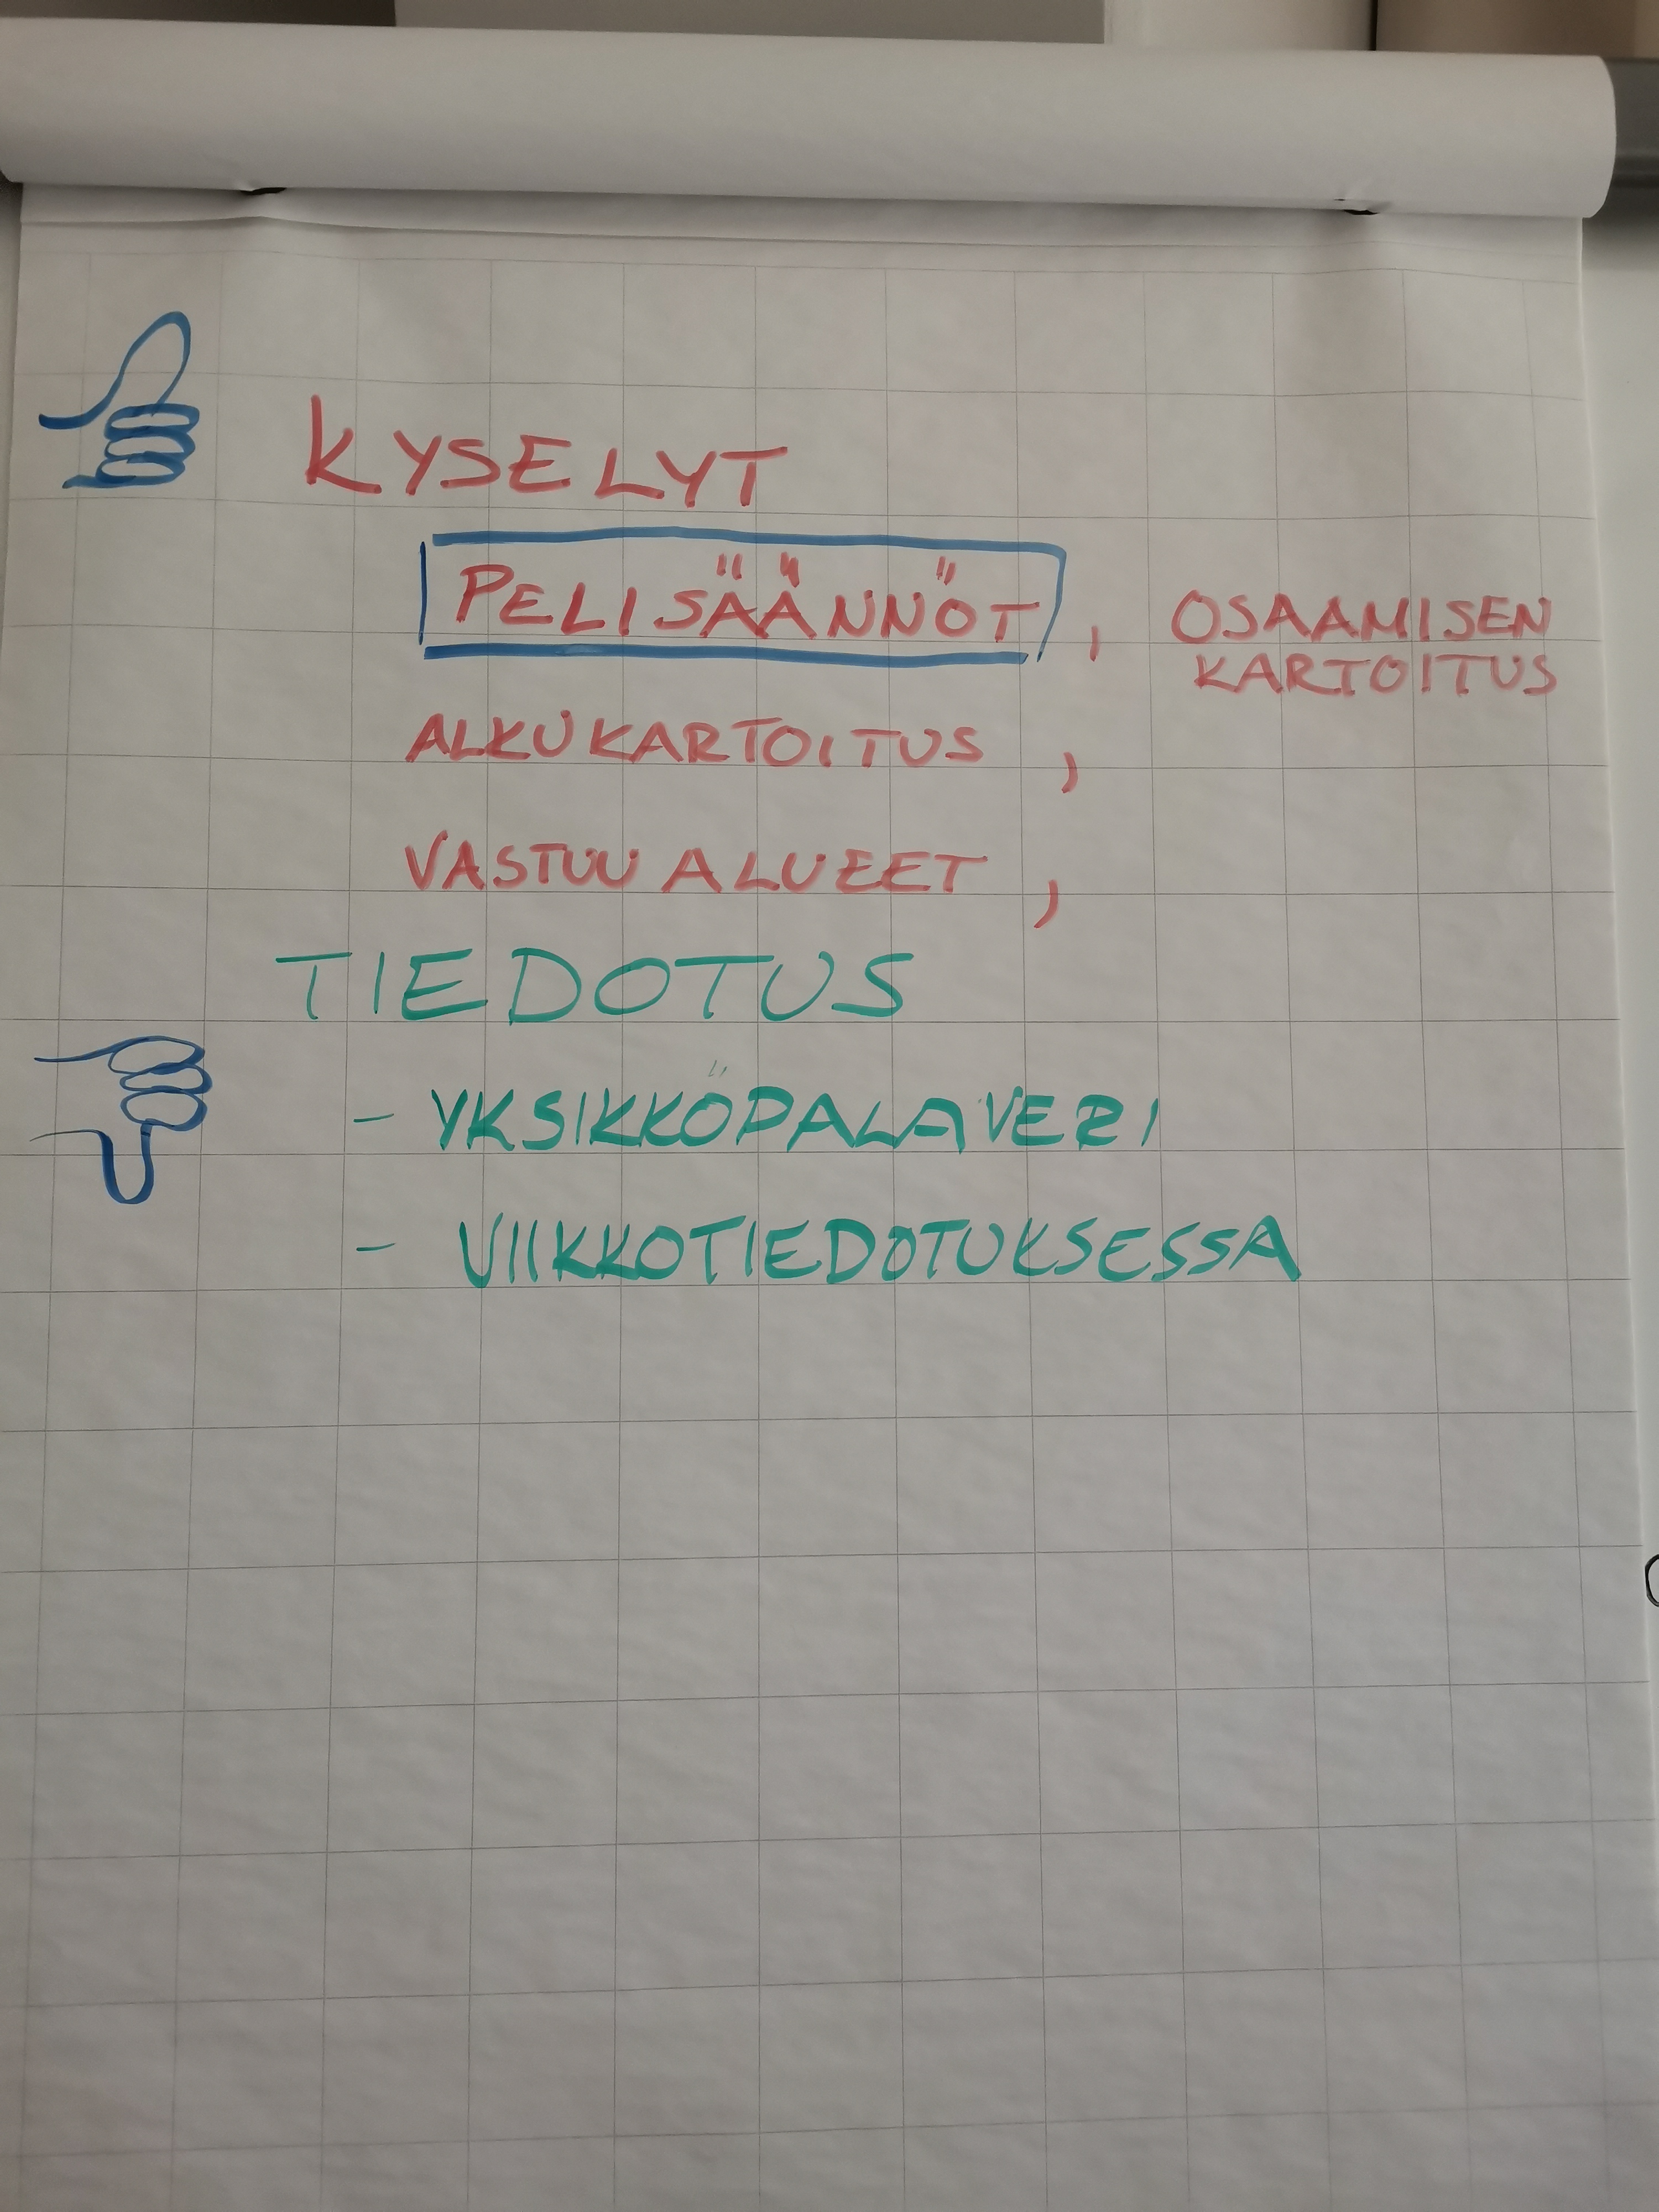 KYSELYT
PELISÄÄNNÖT, OSAAMISEN
KARTOITUS
ALKUKARTOITUS,
VASTUU ALUEET,
TIEDOTUS
- YKSIKKÖPALAVERI
- VIIKKOTIEDOTUKSESSA